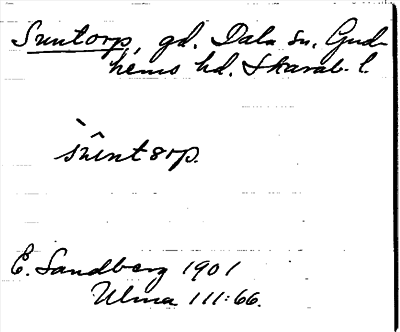 Suntorp, gd. Dala sn. Gud-
hems hd. Skarab. l.
sùntôrp.
E. Sandberg 1901
Ulma 111:66.